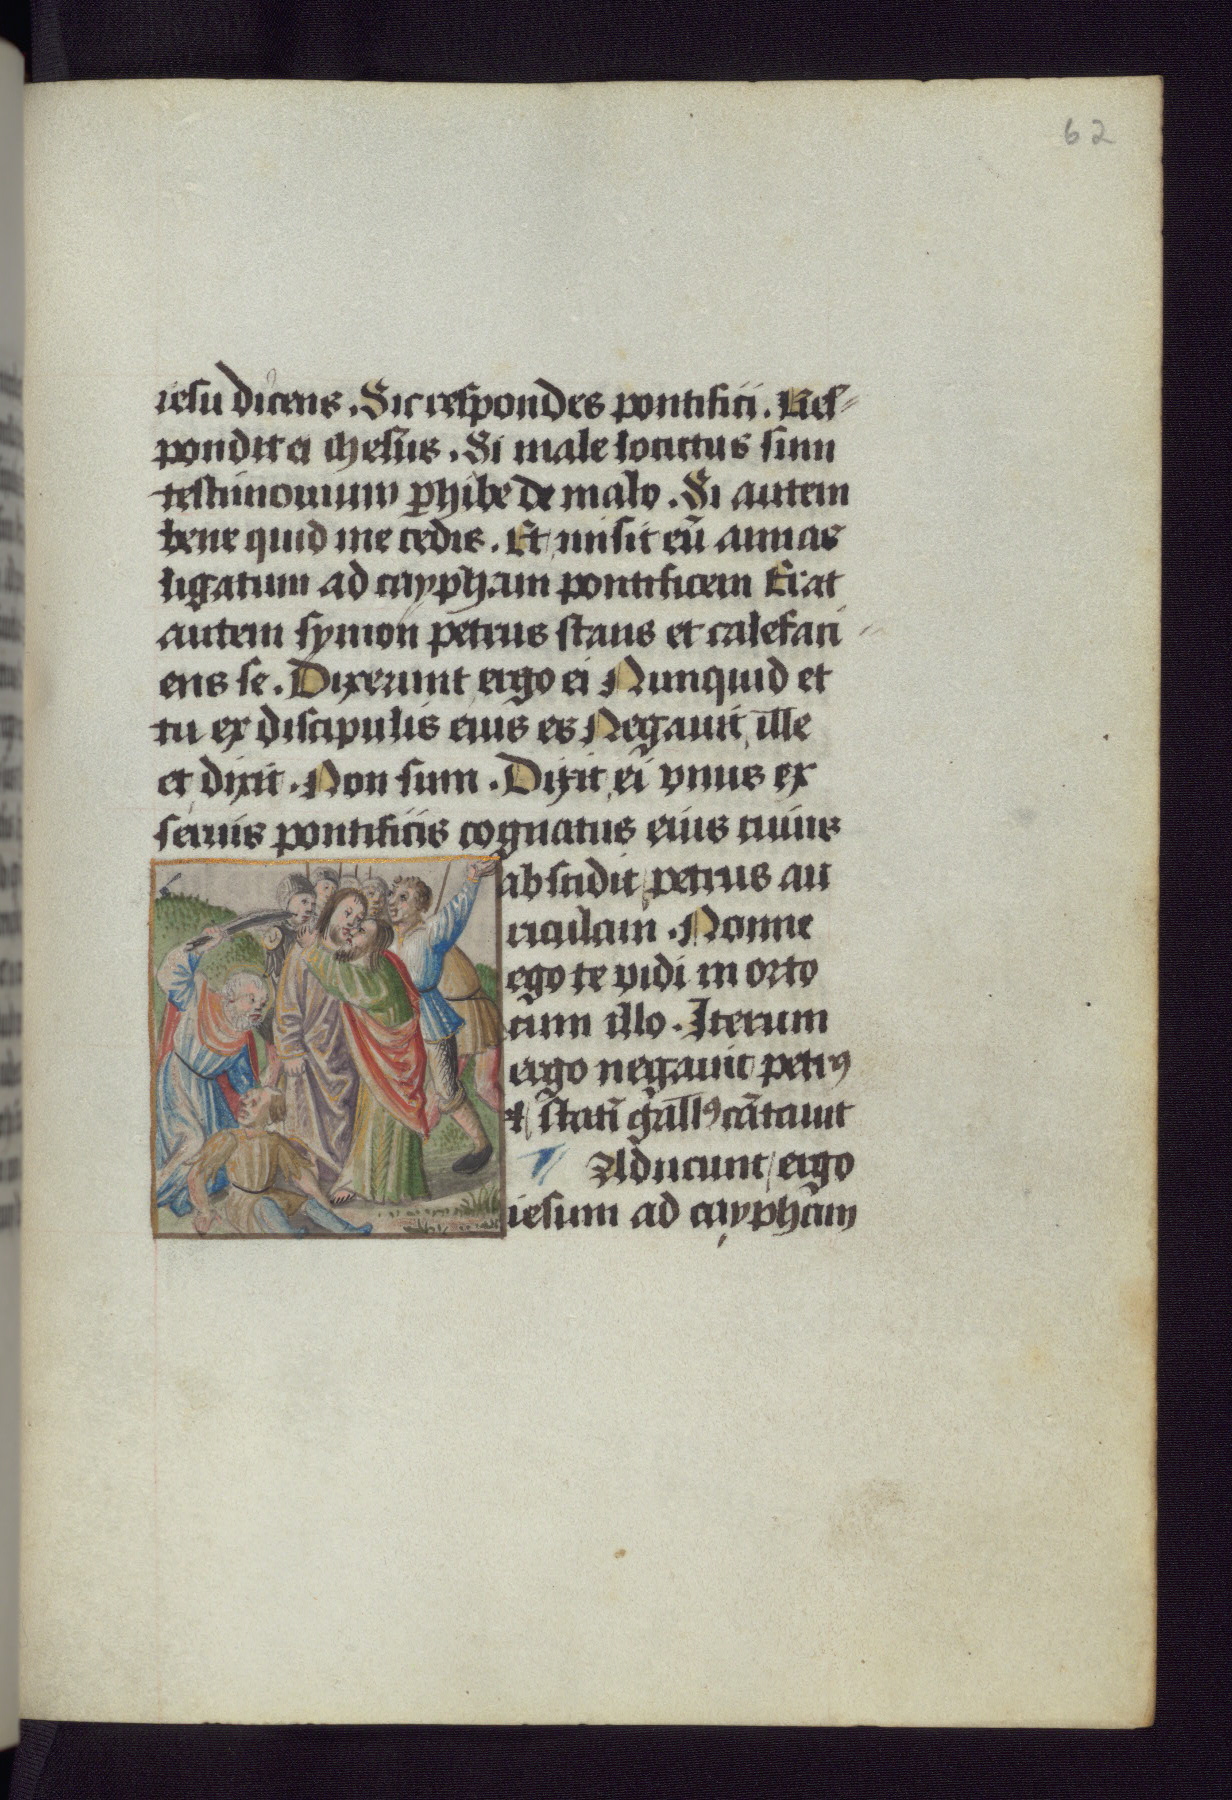 62
iesu dicens. Sic respondes pontifici. Res⸗
pondit ei ihesus. Si male locutus sum
testimonium ꝑhibe de malo. Si autem
bene quid me cedis. Et misit eū annas
ligatum ad caypham pontificem Erat
autem symon petrus stans et calefaci⸗
ens se. Dixerunt ergo ei Nunquid et
tu ex discipulis eius es Negauit ille
et dixit. Non sum. Dixit ei vnus ex
seruis pontificis cognatus eius cuius
abscidit petrus au
riculam. Nonne
ego te vidi in orto
cum illo. Iterum
ergo negauit petrꝰ
et statī gallꝰ cātauit
Aducunt ergo
iesum ad caypham